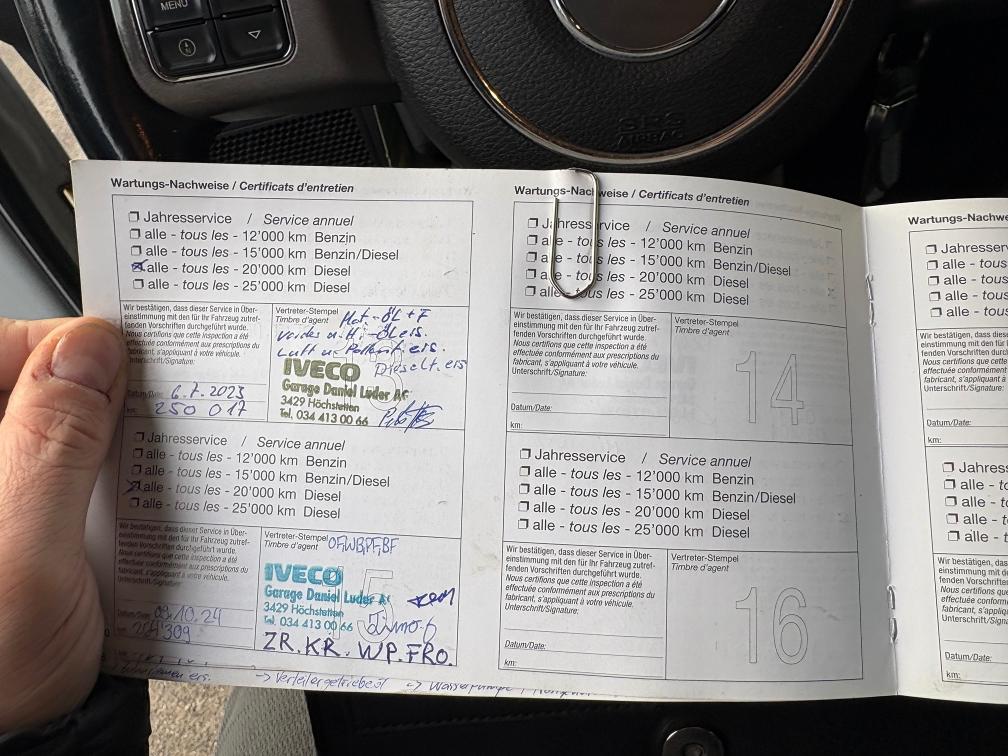 MENU
SRS
AIRBAG
Wartungs-Nachweise / Certificats d'entretien
Jahresservice / Service annuel
alle - tous les - 12'000 km Benzin
alle - tous les - 15'000 km Benzin/Diesel
alle - tous les - 20'000 km Diesel
alle - tous les - 25'000 km Diesel
Wir bestätigen, dass dieser Service in Über-
einstimmung mit den für Ihr Fahrzeug zutref-
fenden Vorschriften durchgeführt wurde.
Nous certifions que cette inspection a été
effectuée conformément aux prescriptions du
fabricant, s'appliquant à votre véhicule.
Unterschrift/Signature:
Datum/Date: 6.7.2023
km: 250 017
Vertreter-Stempel
Timbre d'agent
Mot-öl+F
vorder u. Hi-öl ers.
Luft u. Pollenf. ers.
Dieself. ers
IVECO
Garage Daniel Lüder AG
3429 Höchstetten
Tel. 034 413 00 66
Jahresservice / Service annuel
alle - tous les - 12'000 km Benzin
alle - tous les - 15'000 km Benzin/Diesel
alle - tous les - 20'000 km Diesel
alle - tous les - 25'000 km Diesel
Wir bestätigen, dass dieser Service in Über-
einstimmung mit den für Ihr Fahrzeug zutref-
fenden Vorschriften durchgeführt wurde.
Nous certifions que cette inspection a été
effectuée conformément aux prescriptions du
fabricant, s'appliquant à votre véhicule.
Unterschrift/Signature:
Datum/Date: 09.10.24
Vertreter-Stempel
Timbre d'agent
IVECO
Garage Daniel Lüder AG
3429 Höchstetten
Tel. 034 413 00 66
ZR. KR. WP. FRO.
ers. -> Verteilergetriebeöl -> Wasserpumpe
Wartungs-Nachweise / Certificats d'entretien
Jahresservice / Service annuel
alle - tous les - 12'000 km Benzin
alle - tous les - 15'000 km Benzin/Diesel
alle - tous les - 20'000 km Diesel
alle - tous les - 25'000 km Diesel
Wir bestätigen, dass dieser Service in Über-
einstimmung mit den für Ihr Fahrzeug zutref-
fenden Vorschriften durchgeführt wurde.
Nous certifions que cette inspection a été
effectuée conformément aux prescriptions du
fabricant, s'appliquant à votre véhicule.
Unterschrift/Signature:
Datum/Date:
km:
Vertreter-Stempel
Timbre d'agent
14
Jahresservice / Service annuel
alle - tous les - 12'000 km Benzin
alle - tous les - 15'000 km Benzin/Diesel
alle - tous les - 20'000 km Diesel
alle - tous les - 25'000 km Diesel
Wir bestätigen, dass dieser Service in Über-
einstimmung mit den für Ihr Fahrzeug zutref-
fenden Vorschriften durchgeführt wurde.
Nous certifions que cette inspection a été
effectuée conformément aux prescriptions du
fabricant, s'appliquant à votre véhicule.
Unterschrift/Signature:
Datum/Date:
km:
Vertreter-Stempel
Timbre d'agent
16
Wartungs-Nachw
Jahresser
alle - tous
alle - tous
alle - tous
alle - tous
Wir bestätigen, dass dies
einstimmung mit den für
fenden Vorschriften durc
Nous certifions que cette
effectuée conformément
fabricant, s'appliquant à
Unterschrift/Signature:
Datum/Date:
km:
Jahress
alle - to
alle - to
alle - to
alle - to
Wir bestätigen, dass
einstimmung mit den
fenden Vorschriften
Nous certifions que
effectuée conformé
fabricant, s'appliqu
Unterschrift/Signa
Datum/Date:
km: